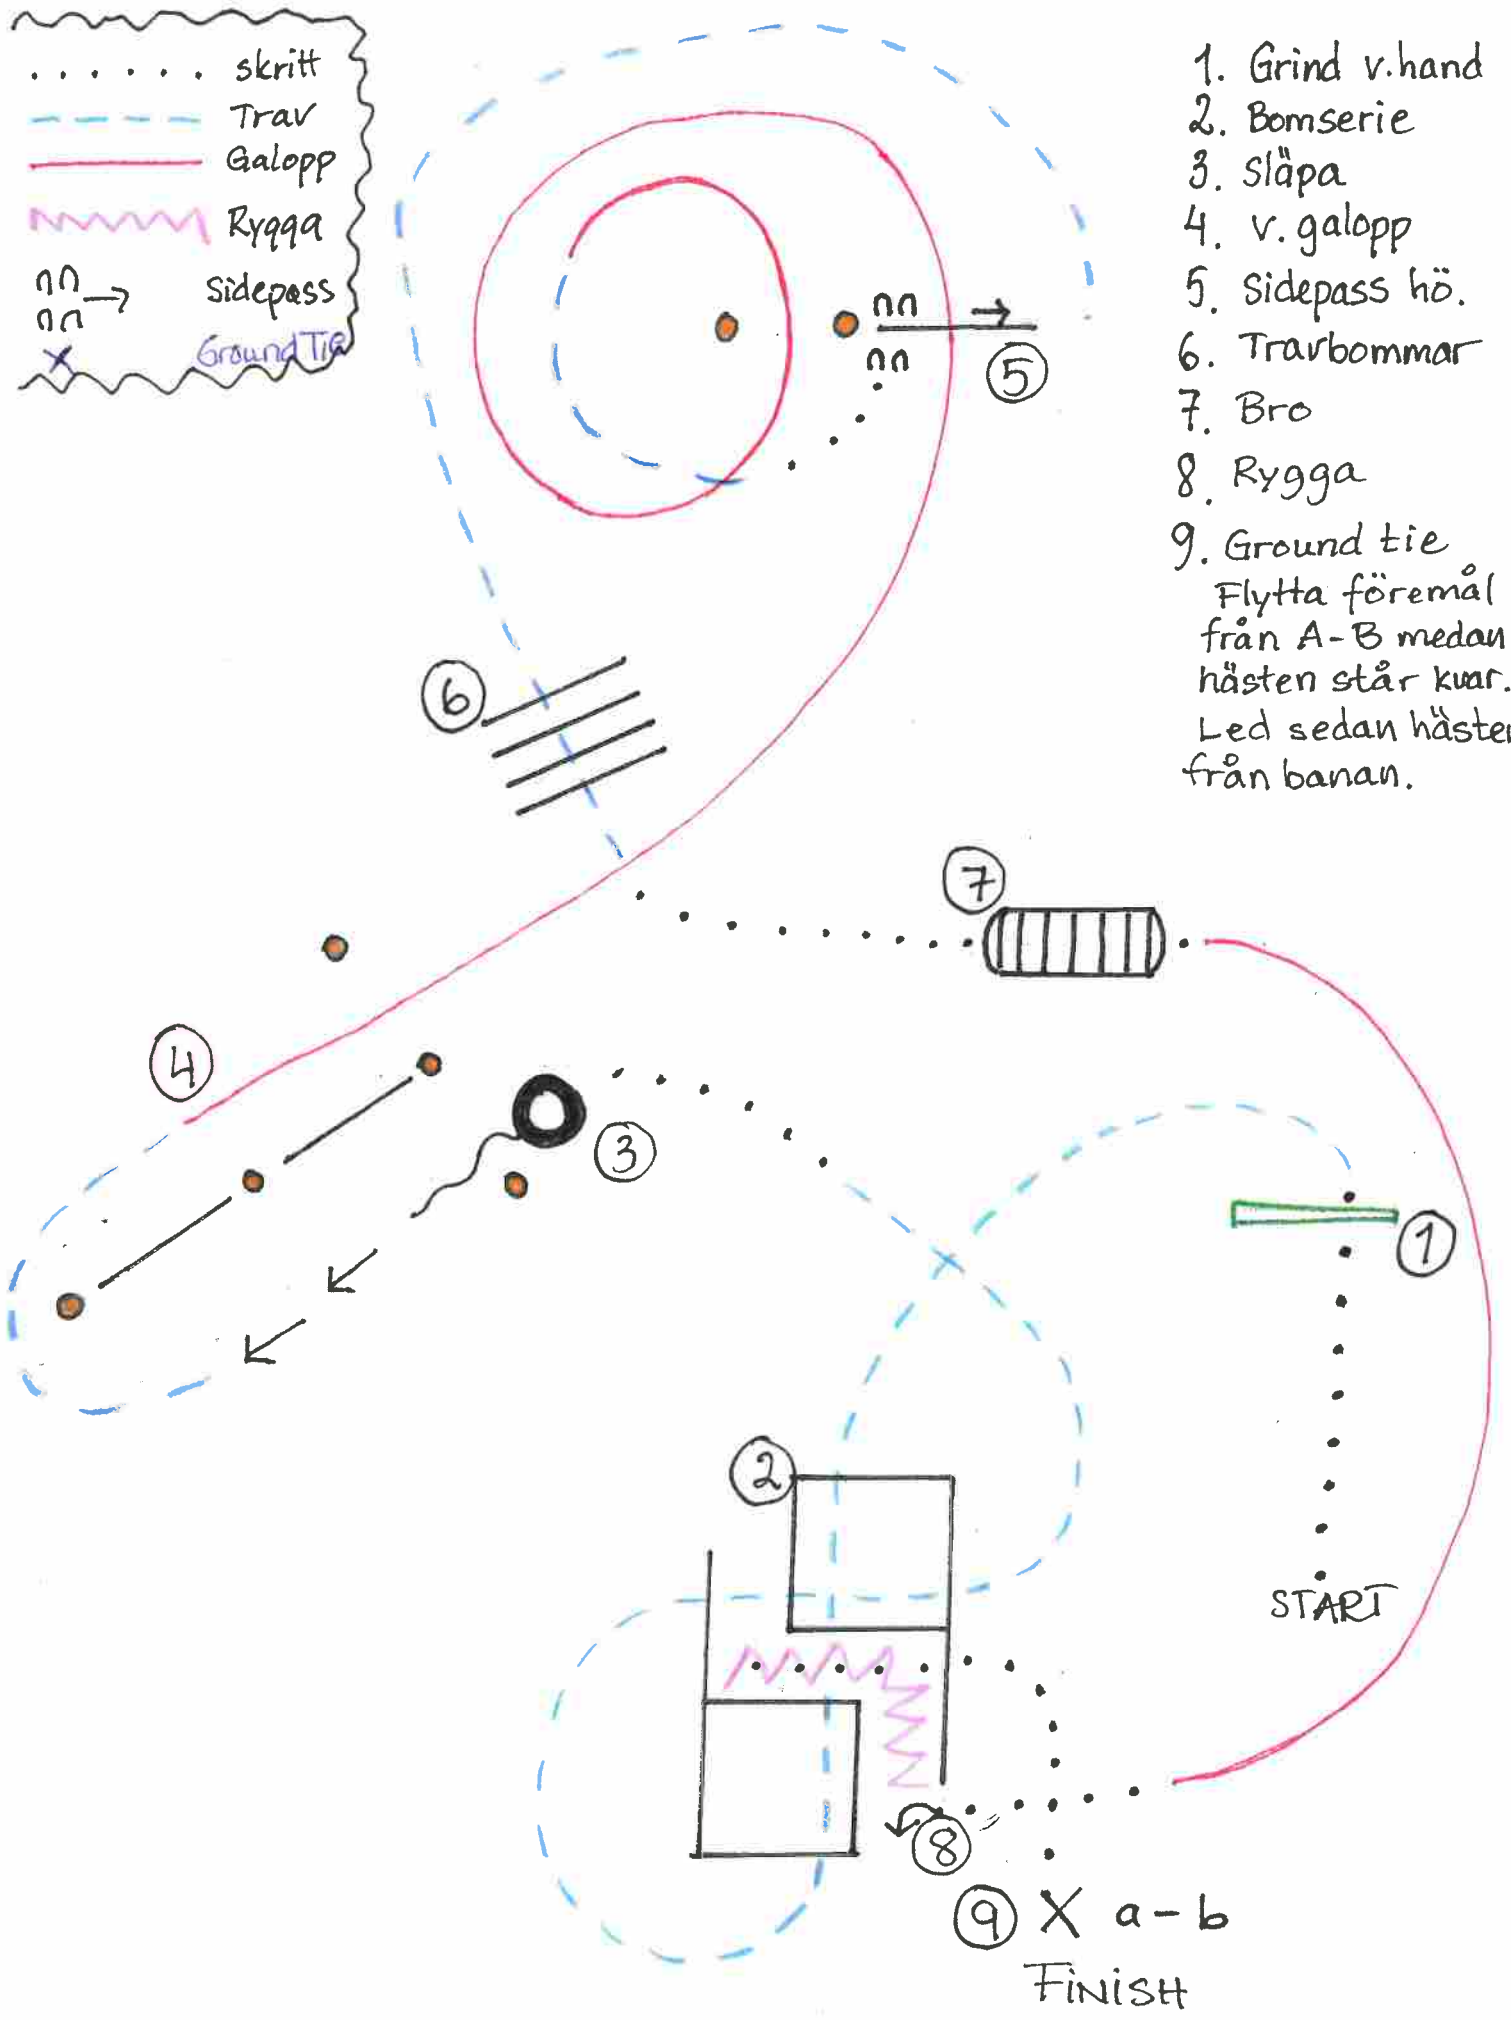 skritt
Trav
Galopp
Rygga
Sidepass
Ground Tie
1. Grind v.hand
2. Bomserie
3. Släpa
4. v. galopp
5. Sidepass hö.
6. Travbommar
7. Bro
8. Rygga
9. Ground tie
Flytta föremål
från A-B medan
hästen står kvar.
Led sedan hästen
från banan.
5
6
7
4
3
1
2
START
8
9 X a-b
FINISH